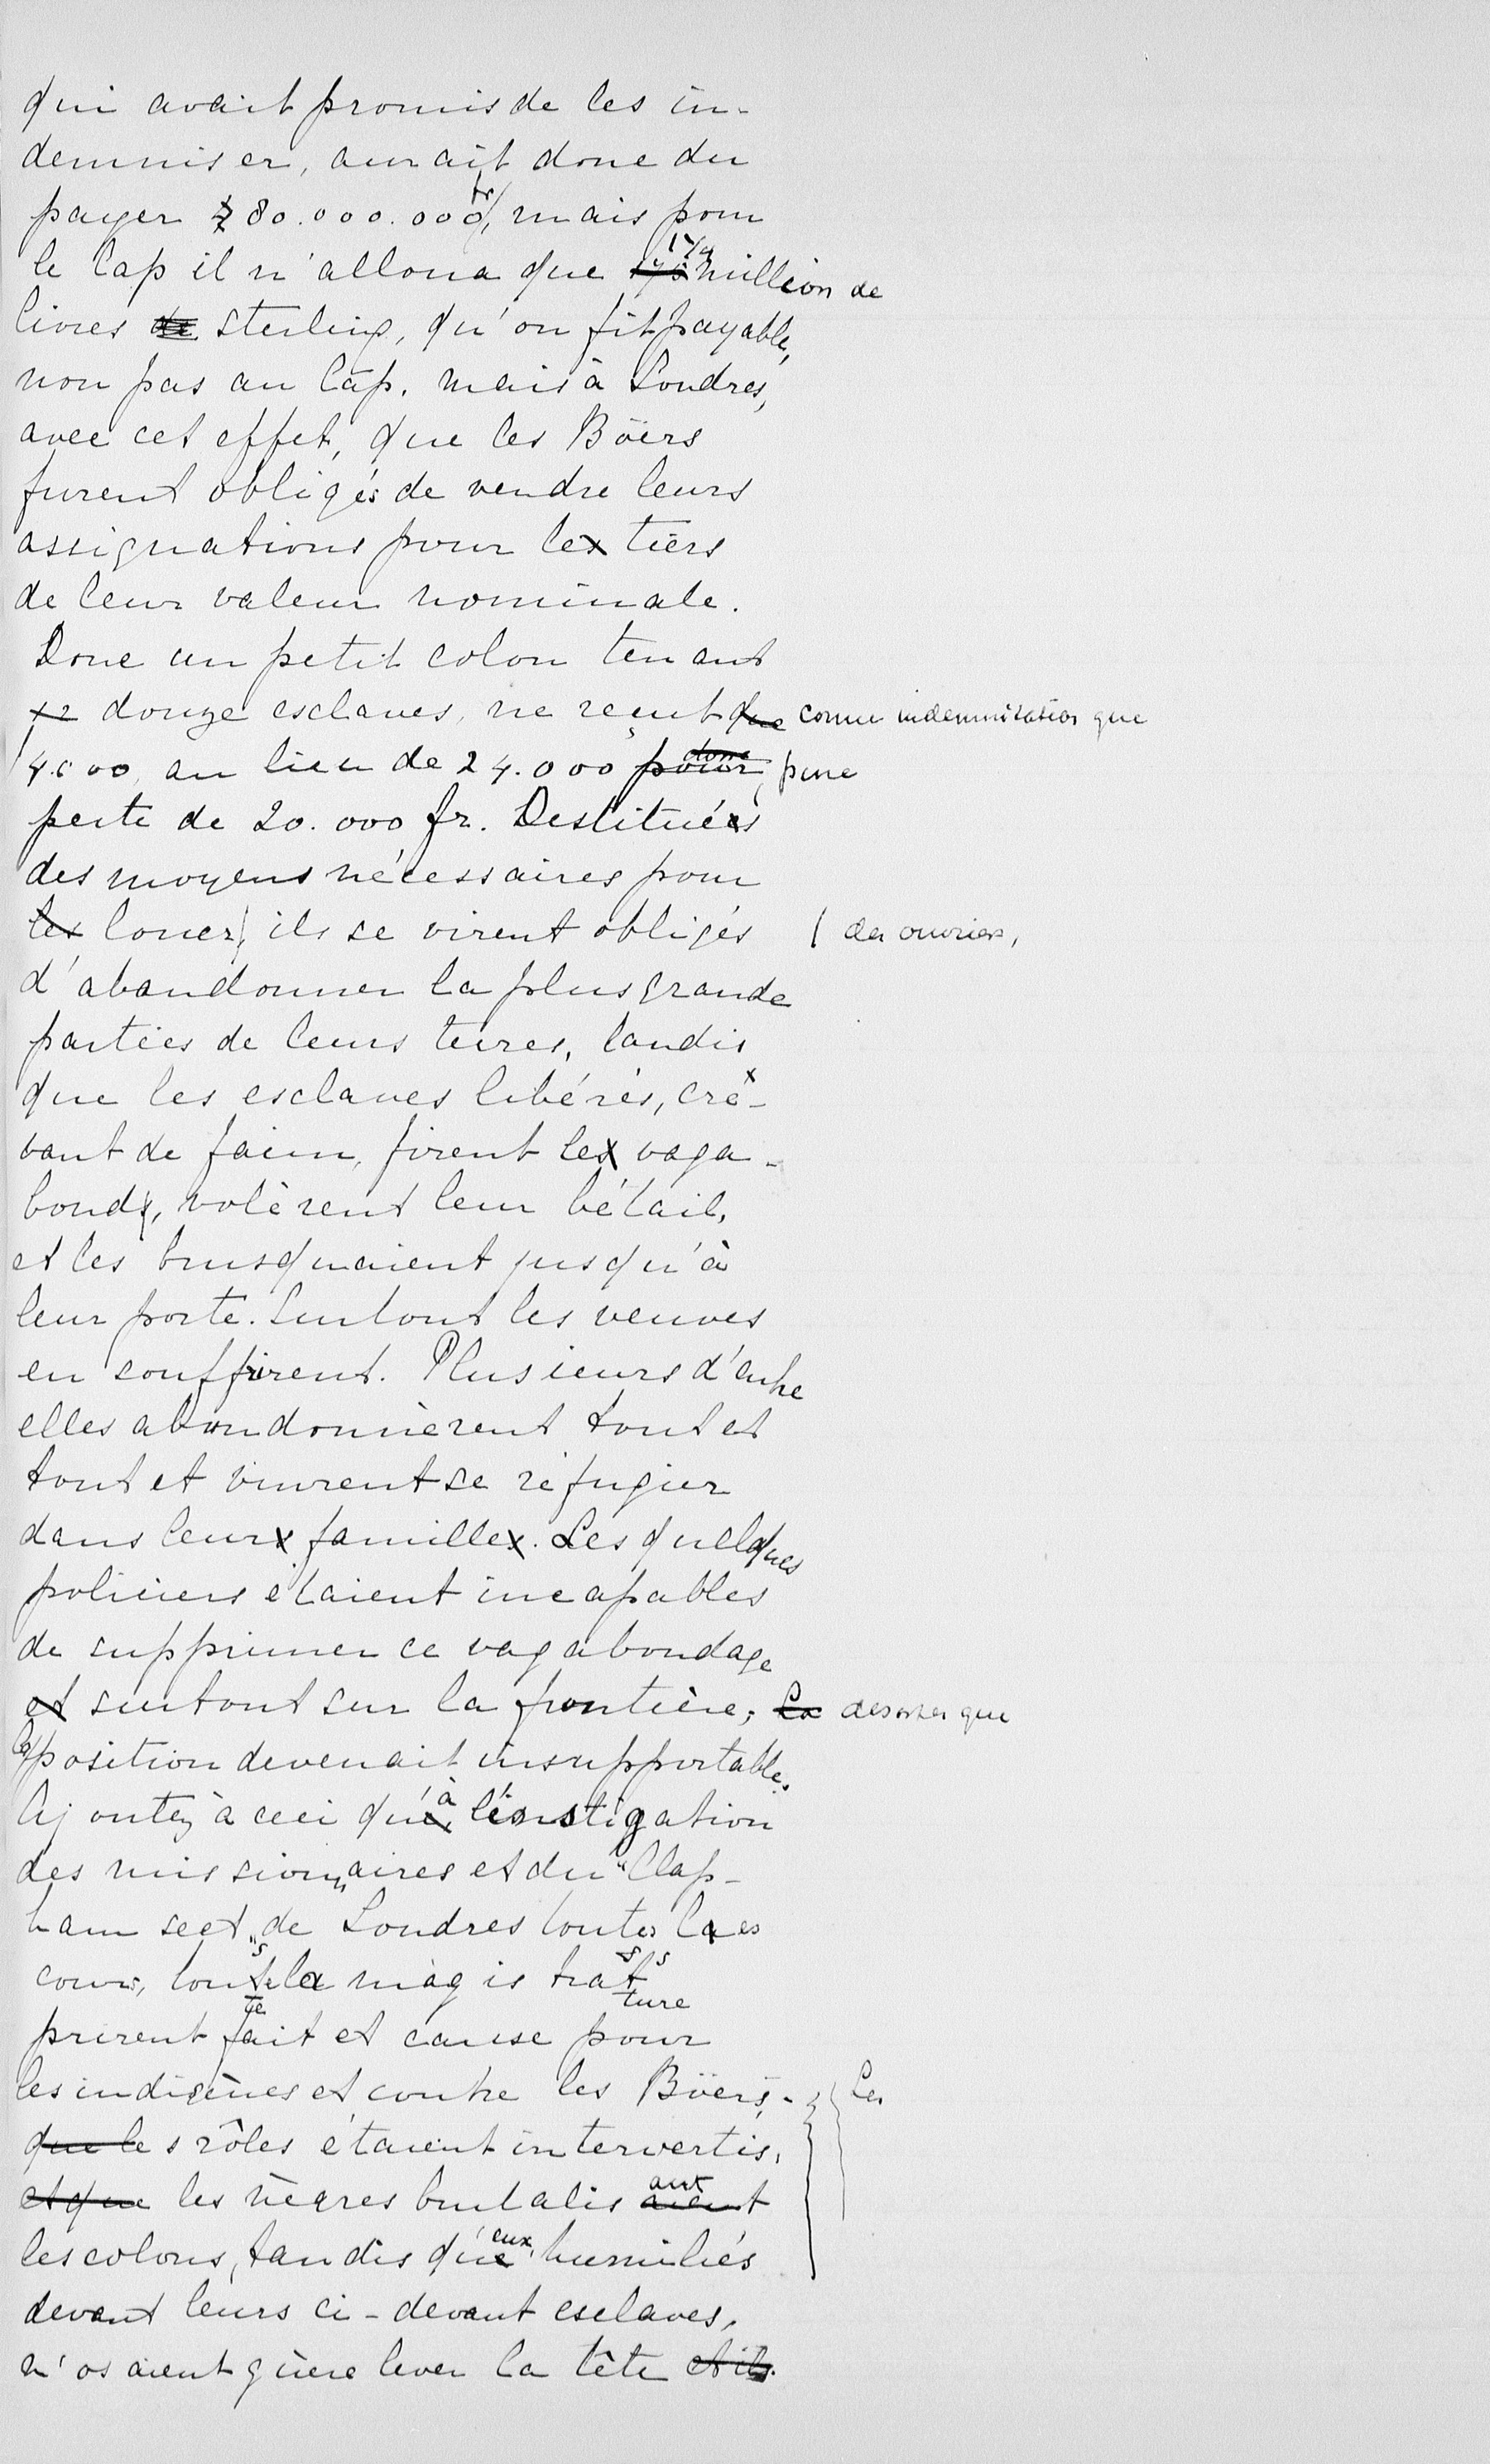 qui avait promis de les in-
demniser, aurait donc du
payer 80.000.000 fr, mais pour
le Cap il n'alloua que 1 1/4 million de
livres sterling, qu'on fit payable,
non pas au Cap, mais à Londres,
avec cet effet, que les Böers
furent obligés de vendre leurs
assignations pour le tiers
de leur valeur nominale.
Donc un petit colon tenant
douze esclaves, ne reçut comme indemnisation que
4.000, au lieu de 24.000, pure
perte de 20.000 fr. Destitués
des moyens nécessaires pour
louer des ouvriers, ils se virent obligés
d'abandonner la plus grande
parties de leurs terres, tandis
que les esclaves libérés, cre-
vant de faim, firent le vaga-
bond, volèrent leur bétail,
et les brusquaient jusqu'à
leur porte. Surtout les veuves
en souffrirent. Plusieurs d'entre
elles abandonnèrent tout et
tout et vinrent se réfugier
dans leur famille. Les quelques
policiers étaient incapables
de supprimer ce vagabondage
surtout sur la frontière; de sorte que
la position devenait insupportable.
Ajoutez à ceci qu'à l'instigation
des missionnaires et du "Clap-
ham sect" de Londres toutes les
cours, toute la magistrature
prirent fait et cause pour
les indigènes et contre les Böers. Les
rôles étaient intervertis,
les nègres brutalisant
les colons, tandis qu'eux, humiliés
devant leurs ci-devant esclaves,
n'osaient guère lever la tête